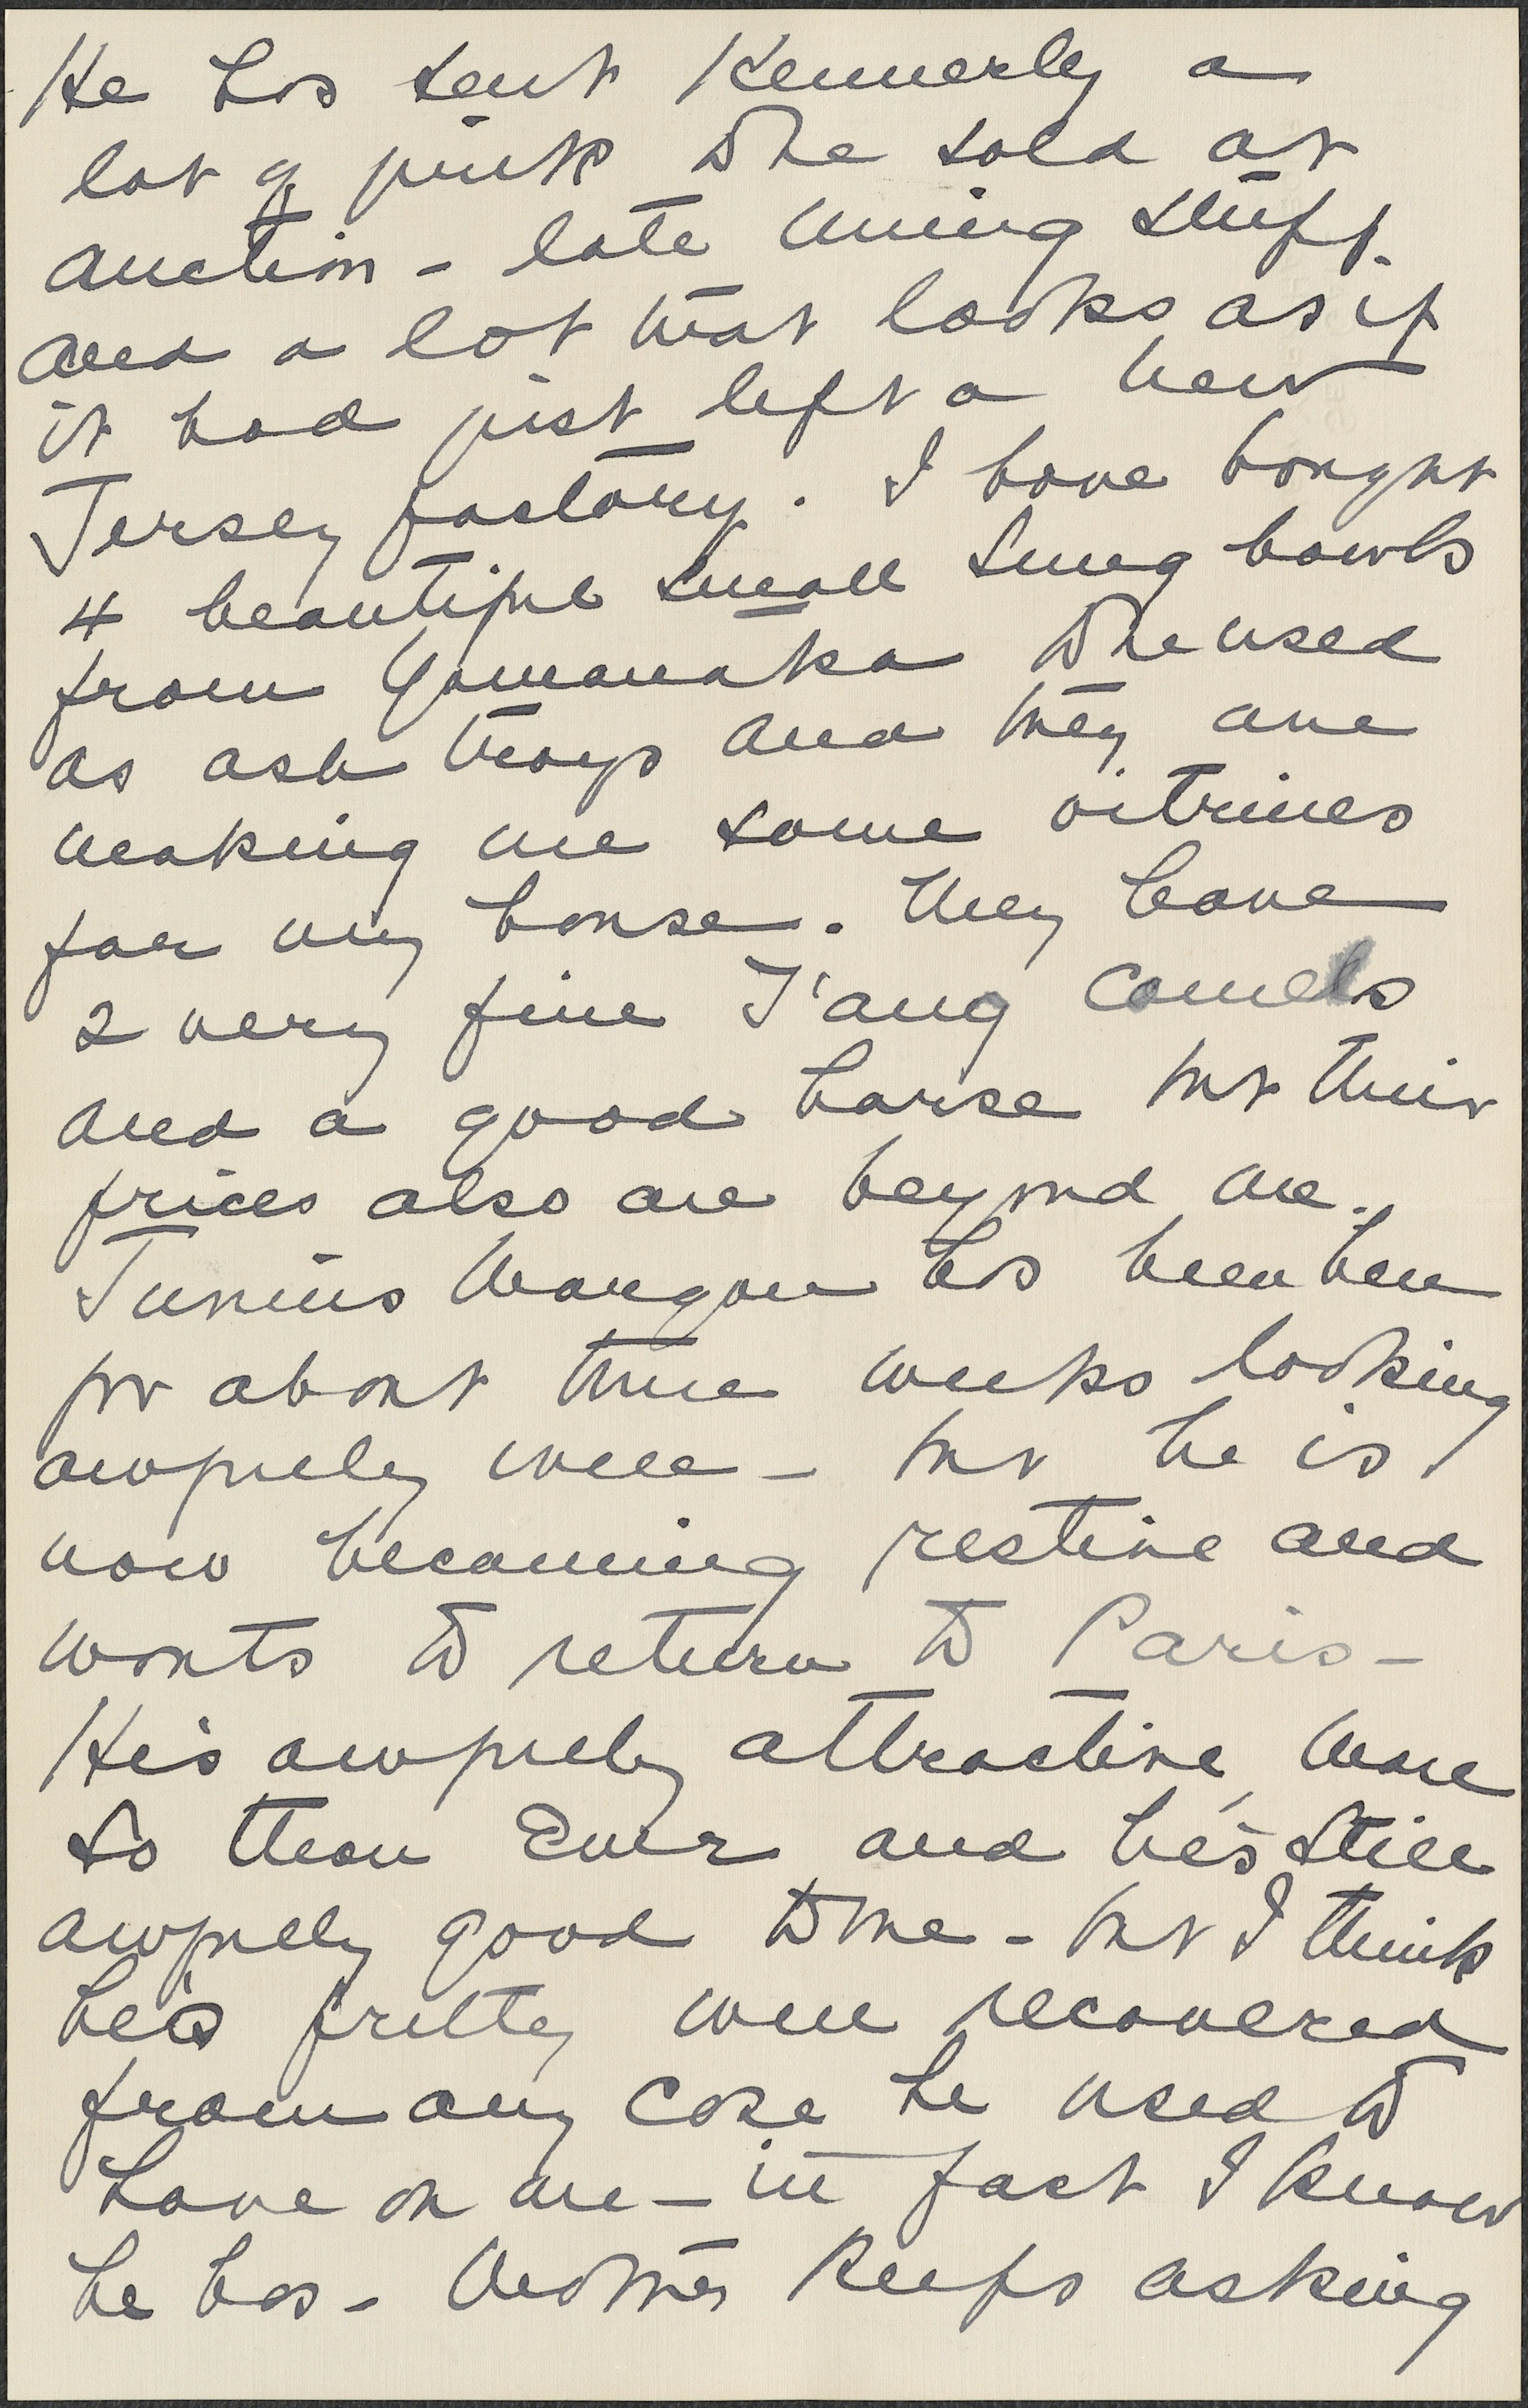 He has sent Kennerly a
lot of junk to be sold at
auction - late Ming stuff.
and a lot that looks as if
it had just left a New
Jersey factory. I have bought
4 beautiful small Sung bowls
from Yamanaka to be used
as ash trays and they are
making me some vitrines
for my house. They have
2 very fine T'ang camels
and a good horse but their
prices also are beyond me.
Junius Morgan has been here
for about three weeks looking
awfully well - but he is
now becoming restive and
wants to return to Paris -
He's awfully attractive, more
so than ever and he's still
awfully good to me - but I think
he's pretty well recovered
from any case he used to
have on me - in fact I know
he has - Mother keeps asking